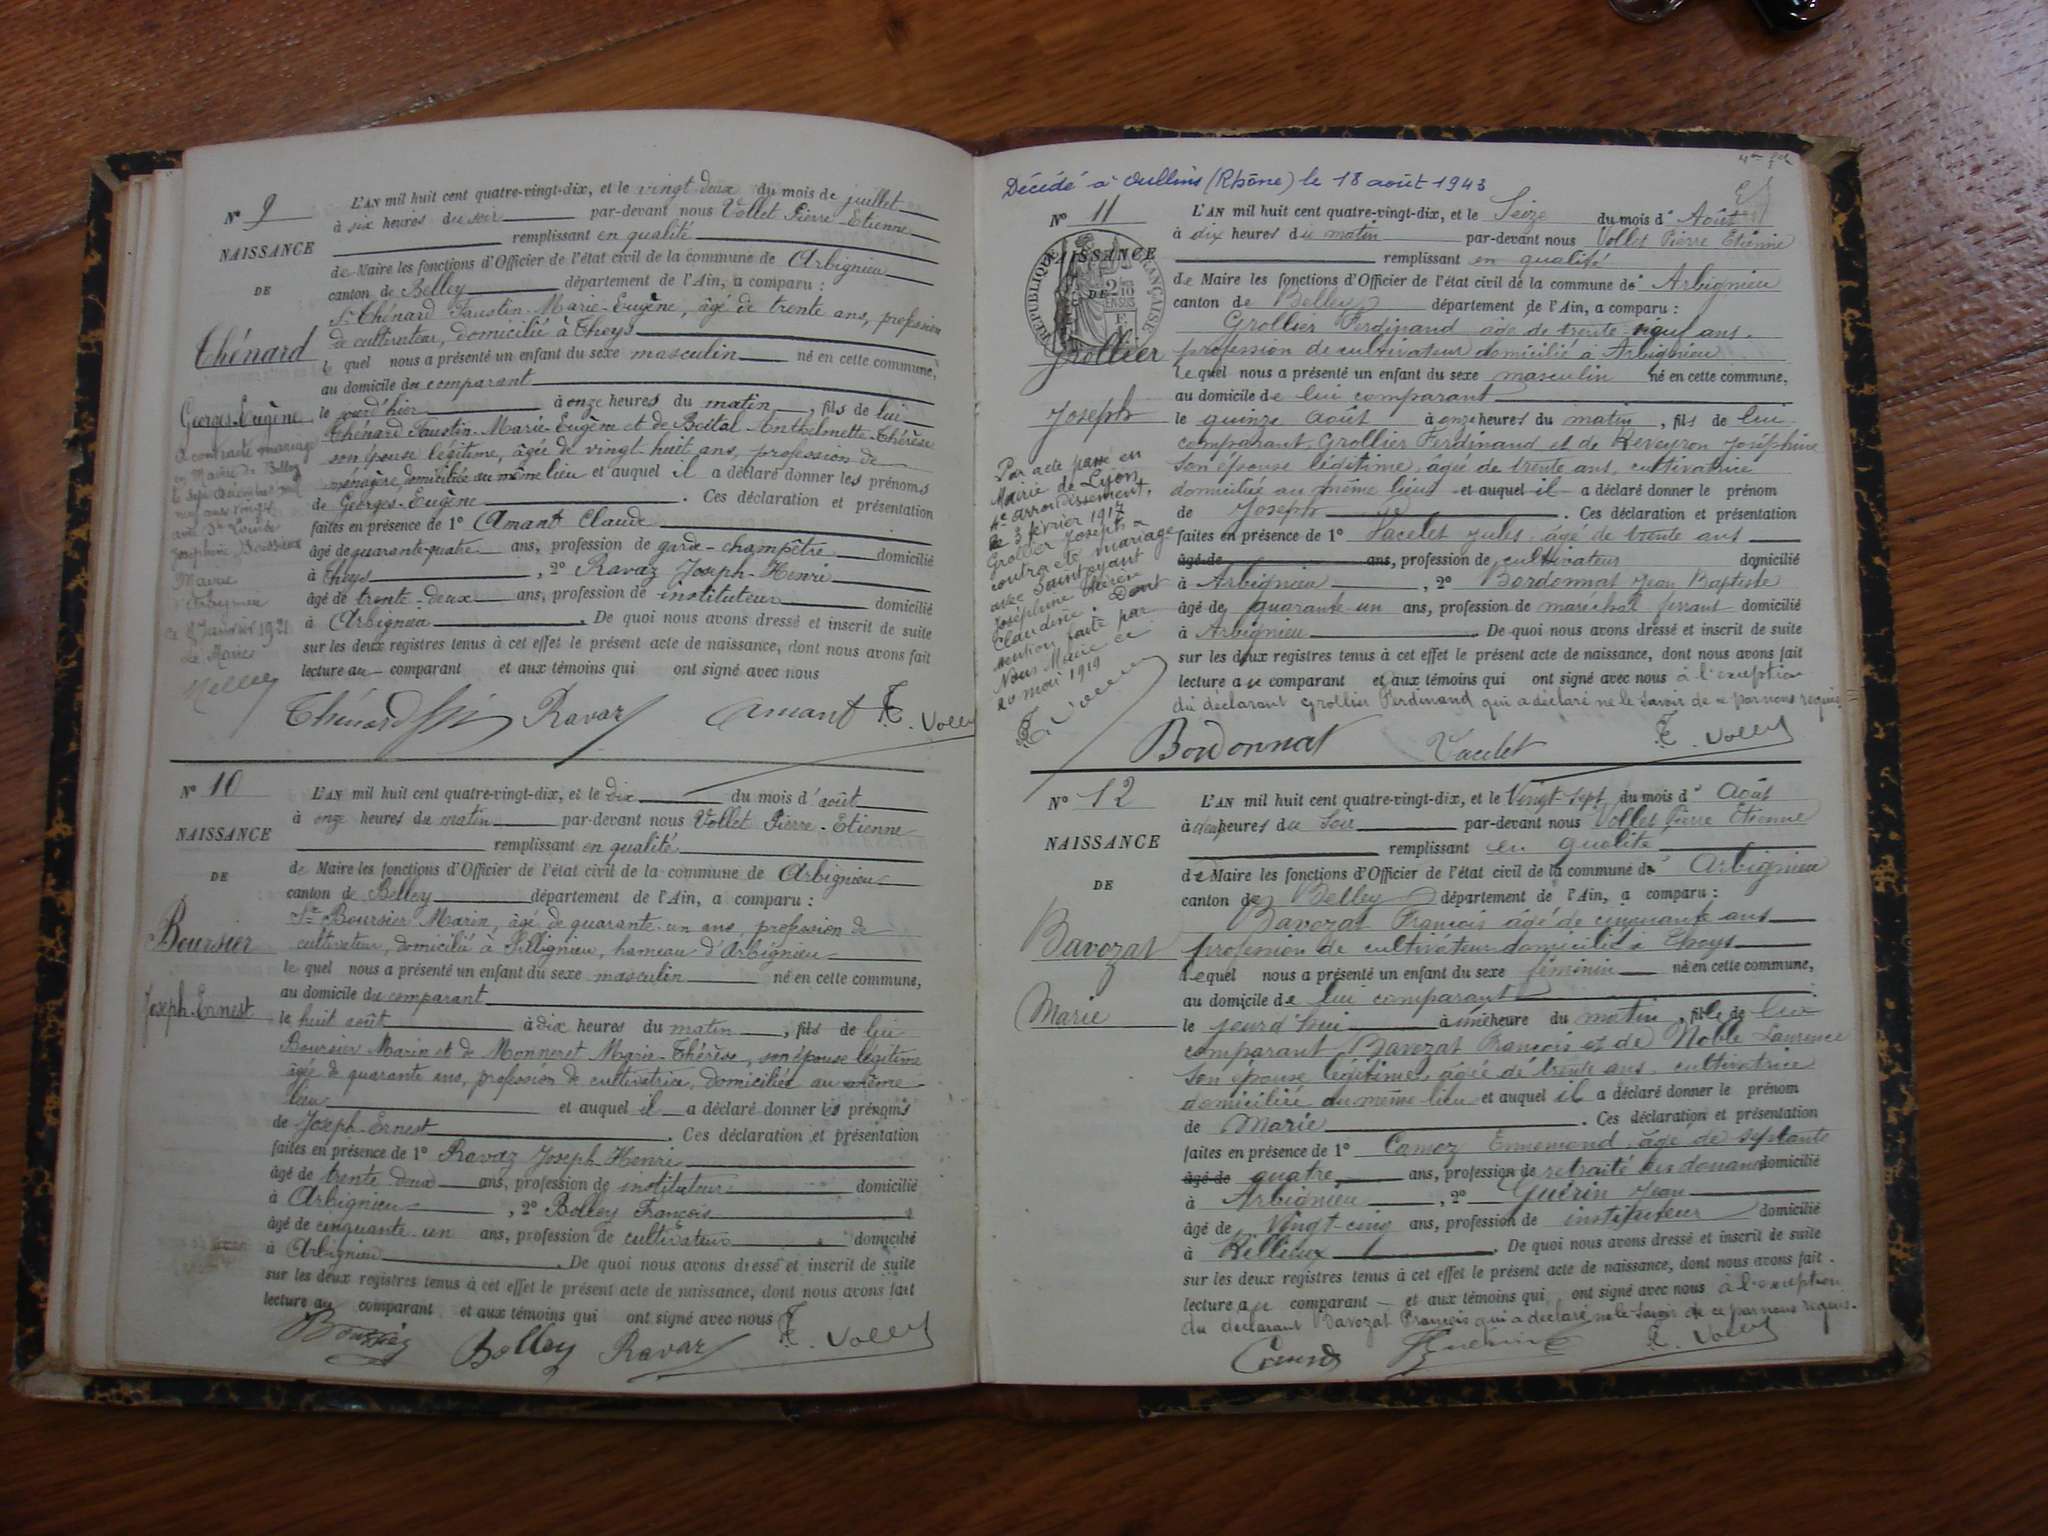 N° 9
NAISSANCE
DE
Chénard
Georges-Eugène
a contracté mariage
en Mairie de Belley
le sept décembre mil
neuf cent vingt
avec Dlle Louise
Joséphine
Mairie
d'Arbignieu
ce 8 Janvier 1921
Le Maire
L'AN mil huit cent quatre-vingt-dix, et le vingt deux du mois de juillet
à six heures du soir par-devant nous Vollet Pierre-Etienne
remplissant en qualité
de Maire les fonctions d'Officier de l'état civil de la commune de Arbignieu
canton de Belley département de l'Ain, a comparu :
Sr Chénard Faustin-Marie-Eugène, âgé de trente ans, profession
de cultivateur, domicilié à Thoys
le quel nous a présenté un enfant du sexe masculin né en cette commune,
au domicile du comparant
le jourd'hier à onze heures du matin, fils de lui
Chénard Faustin-Marie-Eugène et de Boital Anthelmette-Thérèse
son épouse légitime, âgée de vingt-huit ans, profession de
ménagère, domiciliée au même lieu et auquel il a déclaré donner les prénoms
de Georges-Eugène. Ces déclaration et présentation
faites en présence de 1° Amant Claude
âgé de quarante-quatre ans, profession de garde-champêtre domicilié
à Thoys, 2° Ravaz Joseph-Henri
âgé de trente-deux ans, profession de instituteur domicilié
à Arbignieu. De quoi nous avons dressé et inscrit de suite
sur les deux registres tenus à cet effet le présent acte de naissance, dont nous avons fait
lecture au comparant et aux témoins qui ont signé avec nous
Chénard Ravaz Amant Vollet
N° 10
NAISSANCE
DE
Boursier
Joseph-Ernest
L'AN mil huit cent quatre-vingt-dix, et le dix du mois d'août
à onze heures du matin par-devant nous Vollet Pierre-Etienne
remplissant en qualité
de Maire les fonctions d'Officier de l'état civil de la commune de Arbignieu
canton de Belley département de l'Ain, a comparu :
Sr Boursier Marin, âgé de quarante-un ans, profession de
cultivateur, domicilié à Sillignieu, hameau d'Arbignieu
le quel nous a présenté un enfant du sexe masculin né en cette commune,
au domicile du comparant
le huit août à dix heures du matin, fils de lui
Boursier Marin et de Monneret Marie-Thérèse, son épouse légitime
âgée de quarante ans, profession de cultivatrice, domiciliée au même
lieu et auquel il a déclaré donner les prénoms
de Joseph-Ernest. Ces déclaration et présentation
faites en présence de 1° Ravaz Joseph-Henri
âgé de trente-deux ans, profession de instituteur domicilié
à Arbignieu, 2° Bolley François
âgé de cinquante-un ans, profession de cultivateur domicilié
à Arbignieu. De quoi nous avons dressé et inscrit de suite
sur les deux registres tenus à cet effet le présent acte de naissance, dont nous avons fait
lecture au comparant et aux témoins qui ont signé avec nous
Boursier Bolley Ravaz Vollet
Décédé à Oullins (Rhône) le 18 août 1943
N° 11
NAISSANCE
DE
RÉPUBLIQUE FRANÇAISE
Grollier
Joseph
Par acte passé en
Mairie de Lyon
4e arrondissement,
le 3 février 1917
Grollier Joseph a
contracté mariage
avec Saintoyant
Joséphine
Claudine. Dont
mention faite par
Nous Maire ce
20 mai 1919
L'AN mil huit cent quatre-vingt-dix, et le Seize du mois d'Août
à dix heures du matin par-devant nous Vollet Pierre Etienne
remplissant en qualité
de Maire les fonctions d'Officier de l'état civil de la commune de Arbignieu
canton de Belley département de l'Ain, a comparu :
Grollier Ferdinand âgé de trente neuf ans.
profession de cultivateur domicilié à Arbignieu
lequel nous a présenté un enfant du sexe masculin né en cette commune,
au domicile de lui comparant
le quinze août à onze heures du matin, fils de lui
comparant Grollier Ferdinand et de Reveyron Joséphine
son épouse légitime, âgée de trente ans, cultivatrice
domiciliée au même lieu et auquel il a déclaré donner le prénom
de Joseph. Ces déclaration et présentation
faites en présence de 1° Vacelet Jules âgé de trente ans
âgé de ans, profession de cultivateur domicilié
à Arbignieu, 2° Bordonnat Jean Baptiste
âgé de quarante un ans, profession de maréchal ferrant domicilié
à Arbignieu. De quoi nous avons dressé et inscrit de suite
sur les deux registres tenus à cet effet le présent acte de naissance, dont nous avons fait
lecture au comparant et aux témoins qui ont signé avec nous à l'exception
du déclarant Grollier Ferdinand qui a déclaré ne le savoir de ce par nous requis
Bordonnat Vacelet Vollet
N° 12
NAISSANCE
DE
Bavozat
Marie
L'AN mil huit cent quatre-vingt-dix, et le Vingt-sept du mois d'Août
à deux heures du Soir par-devant nous Vollet Pierre Etienne
remplissant en qualité
de Maire les fonctions d'Officier de l'état civil de la commune de Arbignieu
canton de Belley département de l'Ain, a comparu :
Bavozat François âgé de cinquante ans
profession de cultivateur domicilié à Thoys
lequel nous a présenté un enfant du sexe féminin né en cette commune,
au domicile de lui comparant
le jourd'hui à une heure du matin, fille de lui
comparant Bavozat François et de Noble Laurence
son épouse légitime, âgée de trente ans cultivatrice
domiciliée au même lieu et auquel il a déclaré donner le prénom
de Marie. Ces déclaration et présentation
faites en présence de 1° Camoz Ennemond, âgé de septante
âgé de quatre, ans, profession de retraité des douanes domicilié
à Arbignieu, 2° Guérin Jean
âgé de Vingt-cinq ans, profession de instituteur domicilié
à Rillieux. De quoi nous avons dressé et inscrit de suite
sur les deux registres tenus à cet effet le présent acte de naissance, dont nous avons fait
lecture au comparant et aux témoins qui ont signé avec nous à l'exception
du déclarant Bavozat François qui a déclaré ne le savoir de ce par nous requis.
Guérin Vollet